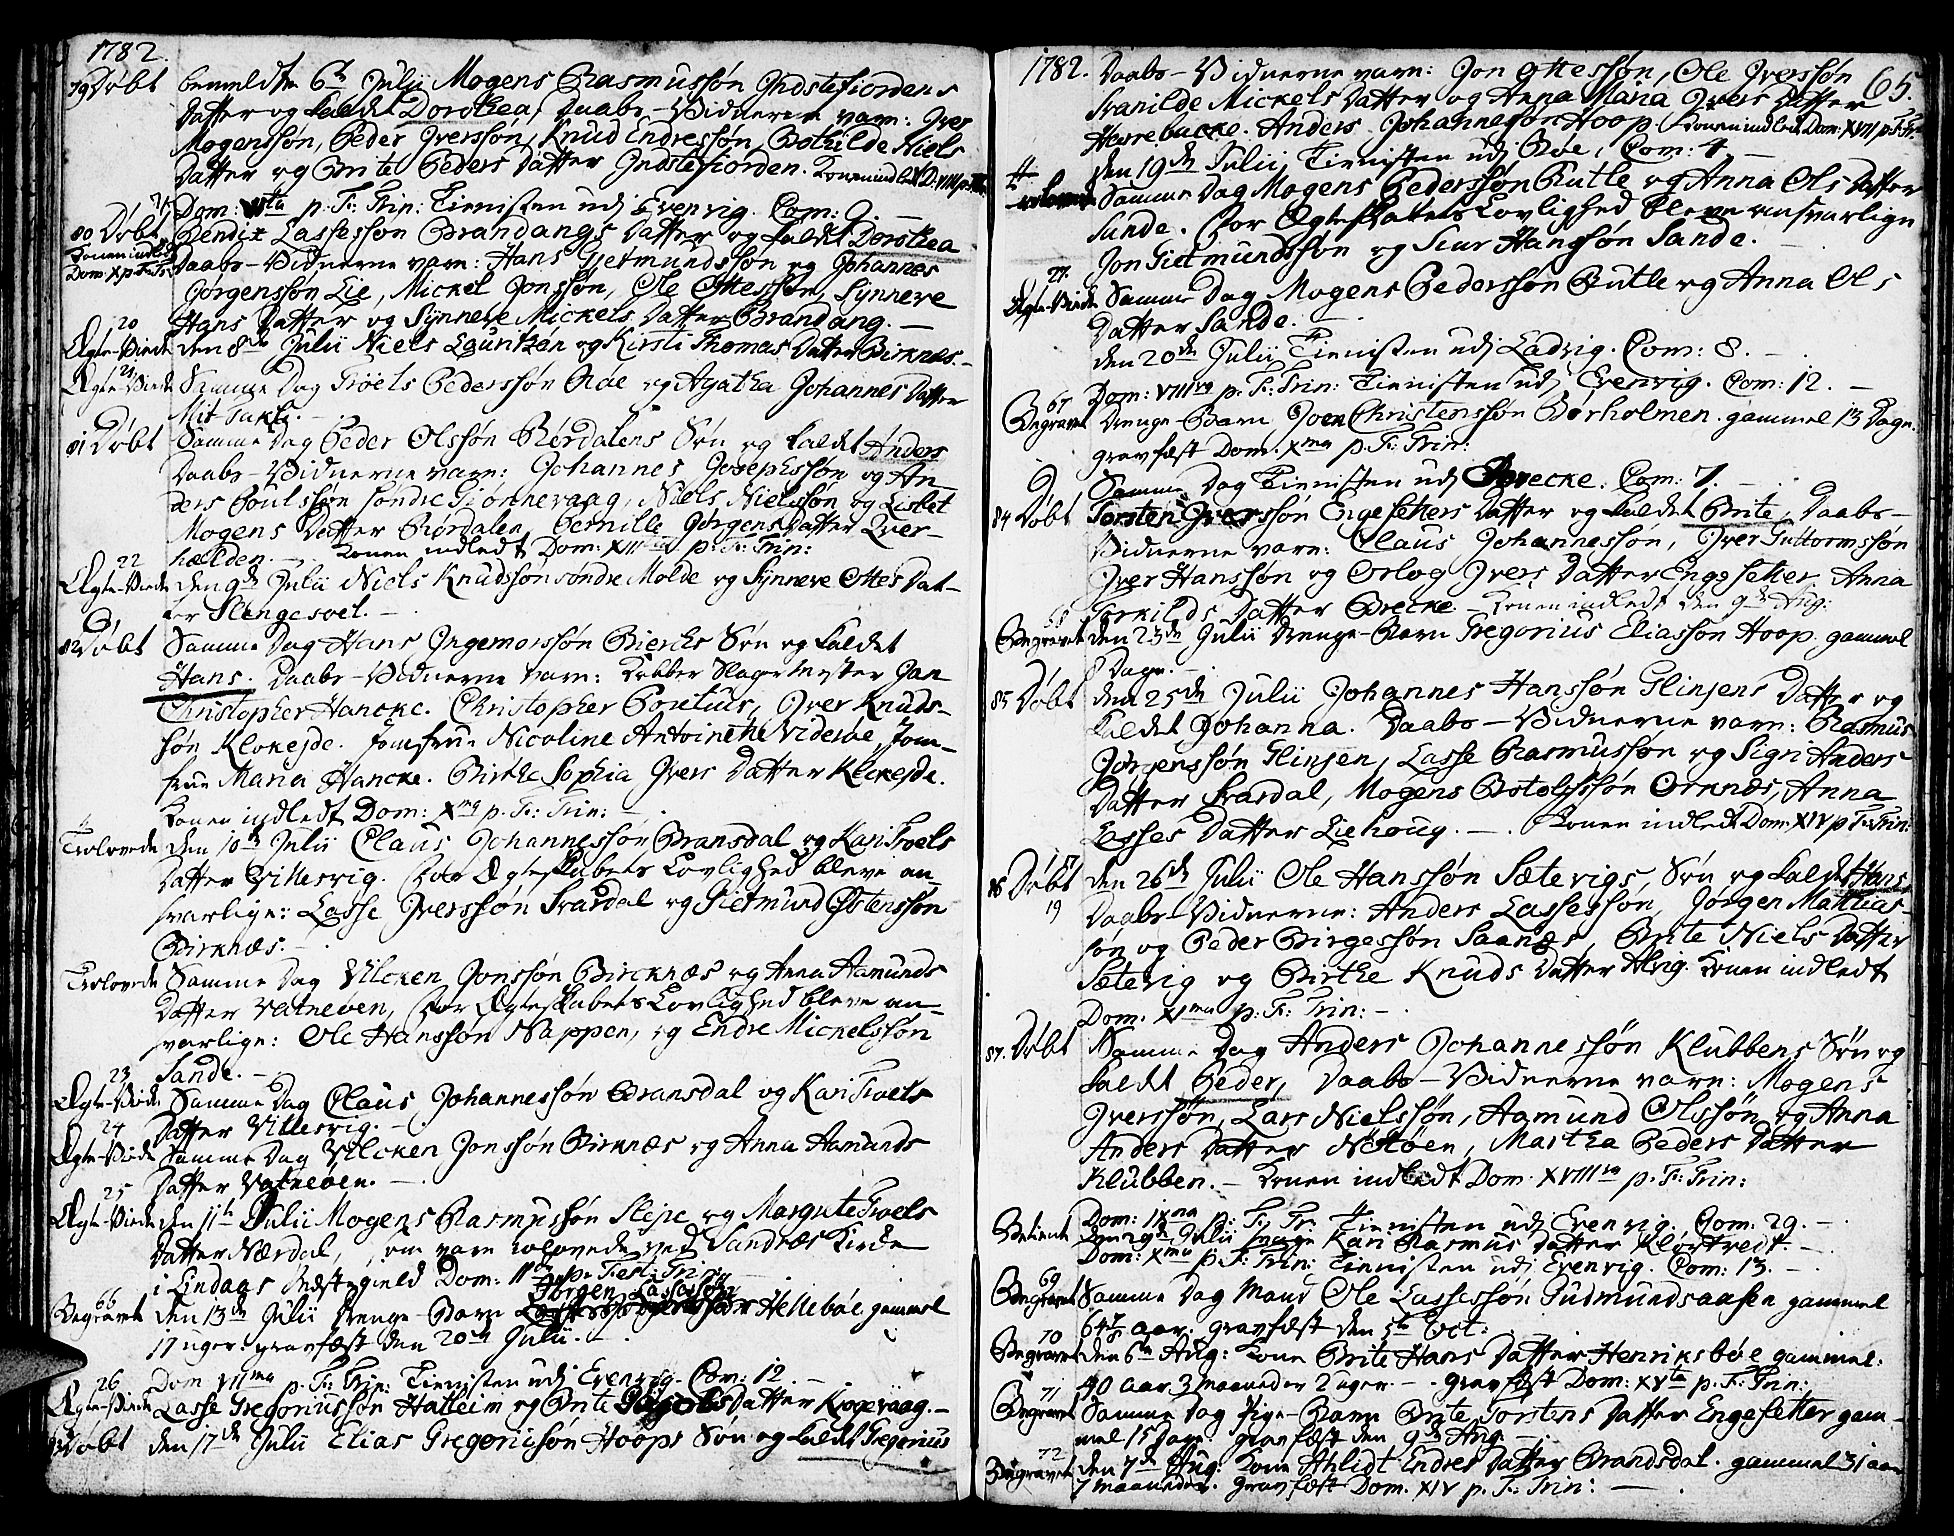 1782.
79 Døbt bemeldte 6te Julii Mogens Rasmussøn Indstefiordens
Datter og kaldet Dorothea, Daabs-Vidnerne vare: Iver
Mogenssøn, Peder Iverssøn, Knud Endressøn, Bothilde Niels
Datter og Brite Peders Datter Indstefiorden. Konen indledt D: VIII p. Tr:
Dom: VIta p. F: Trin: Tienisten udj Evenvig. Com: 9. —
80 Døbt Bendix Lassessøn Brandangs Datter og kaldet Dorothea
Konen indledt
Dom. X p. F: Tr:
Daabs-Vidnerne vare: Hans Gietmundssøn og Johannes
Jørgenssøn Lie, Mickel Jonssøn, Ole Ottessøn, Synneve
Hans Datter og Synneve Mickels Datter Brandang. —
20
Ægte-Viede den 8de Julii Niels Lauritzen og Kirsti Thomas Datter Birknæs. —
21
Ægte-Viede Samme Dag Troels Pederssøn Røe og Agatha Johannes Datter
Mit Takle. —
81 Døbt Samme Dag Peder Olssøn Rørdalens Søn og kaldet Anders
Daabs-Vidnerne vare: Johannes Josephssøn og An-
ders Poulssøn søndre Giønnevaag, Niels Nielssøn og Lisbet
Mogens Datter Rørdalen, Pernille Jørgens Datter Qver-
hælden. — Konen indledt Dom: XIIma p. F: Trin:
22
Ægte-Viede den 9de Julii Niels Knudssøn søndre Molde og Synneve Ottes Dat-
ter Slengesvel. —
82 Døbt Samme Dag Hans Ingemorssøn Bierchs Søn og kaldet
Hans. Daabs-Vidnerne vare: Kobber Slager Mester Jan
Christopher Hancke. Christopher Pontius, Iver Knuds-
søn Klokejde. Jomfrue Nicoline Antoinette Viderøe, Jom-
frue Maria Hancke. Birthe Sophia Ivers Datter Klokejde.
Konen indledt Dom: Xma p. F: Trin: —
Trolovede den 10de Julii Claus Johannessøn Bransdal og Kari Troels
Datter Villesvig. For Ægteskabets Lovlighed bleve an-
svarlige: Lasse Iverssøn Svardal og Gietmund Østenssøn
Birknæs. —
Trolovede Samme Dag Vilcken Jonssøn Bircknæs og Anna Aamunds
Datter Vatneøen, For Ægteskabets Lovlighed bleve an-
svarlige: Ole Hanssøn Nappen, og Endre Michelssøn
Sande. —
23
Ægte-Viede Samme Dag Claus Johannessøn Bransdal og Kari Troels
Datter Villesvig. —
24
Ægte-Viede Samme Dag Vilcken Jonssøn Birknæs og Anna Aamunds
Datter Vatneøen. —
25
Ægte-Viede den 11te Julii Mogens Rasmussøn Slejre og Margrite Troels
Datter Nærdal, som vare trolovede ved Sandnæs Kirke
i Lindaas Præstegield Dom: p. Fest: Trin:
66 Jørgen Lassessøn
Begravet den 13de Julii Drenge-Barn Hellebøe gammel
17 uger. gravfæst den 20de Julii. —
Dom VIIma p. F: Trin: Tienisten udj Evenvig. Com: 12. —
26
Ægte-Viede Lasse Gregoriussøn Hatleim og Brite Datter Kogevaag. —
83 Døbt den 17de Julii Elias Gregoriisøn Hoops Søn og kaldt Gregorius
1782. Daabs-Vidnerne vare: Jon Ottessøn, Ole Iverssøn 65.
Svanilde Mickels Datter og Anna Maria Ivers Datter
Herrebacke. Anders Johannesøn Hoop. Konen indledt Dom: XVII p. F: Tr:
den 19de Julii Tienisten udj Bøe, Com: 4. —
Trolovede Samme Dag Mogens Pederssøn Rutle og Anna Ols Datter
Sande. For Ægteskabets Lovlighed bleve ansvarlige
Jon Gietmundssøn og Siur Hanssøn Sande. —
27.
Ægte-Viede Samme Dag Mogens Pederssøn Rutle og Anna Ols
Datter Sande. —
den 20de Julii Tienisten udj Ladvig. Com: 8. —
Dom: VIIIva p. F: Trin: Tienisten udj Evenvig. Com: 12. —
67
Begravet Drenge-Barn Joen Christenssøn Børholmen. gammel 13 Dage.
gravfæst Dom. Xma p. F: Trin:
Samme Dag Tienisten udj Brecke. Com: 7. —
84 Døbt Torsten Iverssøn Engesetters Datter og kaldet Brite, Daabs-
Vidnerne vare: Claus Johannessøn, Iver Guttormssøn
Iver Hanssøn og Orlog Ivers Datter Engesetter. Anna
Torkilds Datter Brecke — Konen indledt den 9de Aug:
68
Begravet den 23de Julii Drenge-Barn Gregorius Eliassøn Hoop. gammel
8 Dage. —
85 Døbt den 25de Julii Johannes Hanssøn Glinjens Datter og
kaldet Johanna. Daabs-Vidnerne vare: Rasmus
Jørgenssøn Glinjen, Lasse Rasmussøn og Sign Anders
Datter Svardal, Mogens Botolfssøn Ornnæs, Anna
Lasses Datter Liehoug. — Konen indledt Dom. XIV p F: Trin:
86 Døbt den 26de Julii Ole Hanssøn Sætevigs, Søn og kaldet Hans,
19
Daabs-Vidnerne: Anders Lassessøn, Jørgen Mathias-
søn og Peder Birgessøn Saanæs, Brite Niels Datter
Sætevig og Birthe Knuds Datter Alvig. Konen indledt
Dom. XIma p. F: Trin: —
87. Døbt Samme Dag Anders Johannessøn Klubbens Søn og
kaldt Peder, Daabs-Vidnerne vare: Mogens
Iverssøn, Lars Nielssøn, Aamund Olssøn og Anna
Anders Datter Nøtøen, Martha Peders Datter
Klubben. — Konen indledt Dom. XVIIIva p. F: Trin:
Dom: IXna p. F: Tr. Tienisten udj Evenvig. Com: 29. —
Betient den 29de Julii Kari Rasmus Datter Kløvtvedt. —
Dom: Xma p. F: Trin: Tienisten udj Evenvig. Com: 13. —
69
Begravet Samme Dag Mand Ole Lassessøn Gudmundsaasen gammel
64 aar. gravfæst den 5te Oct:
70
Begravet den 6te Aug: Kone Brite Hans Datter Henriksbøe gammel.
40 aar 3 maaneder 2 uger. — gravfæst Dom: XVta p. F: Trin:
71
Begravet Samme Dag Pige-Barn Brite Torstens Datter Engesetter gam-
mel 15 Dage. gravfæst den 9de Aug —
72
Begravet den 7de Aug: Kone Ahlidt Endres Datter Brandsdal. gammel 31 aar
7 maaneder. gravfæst Dom. XIV p. F: Trin: —